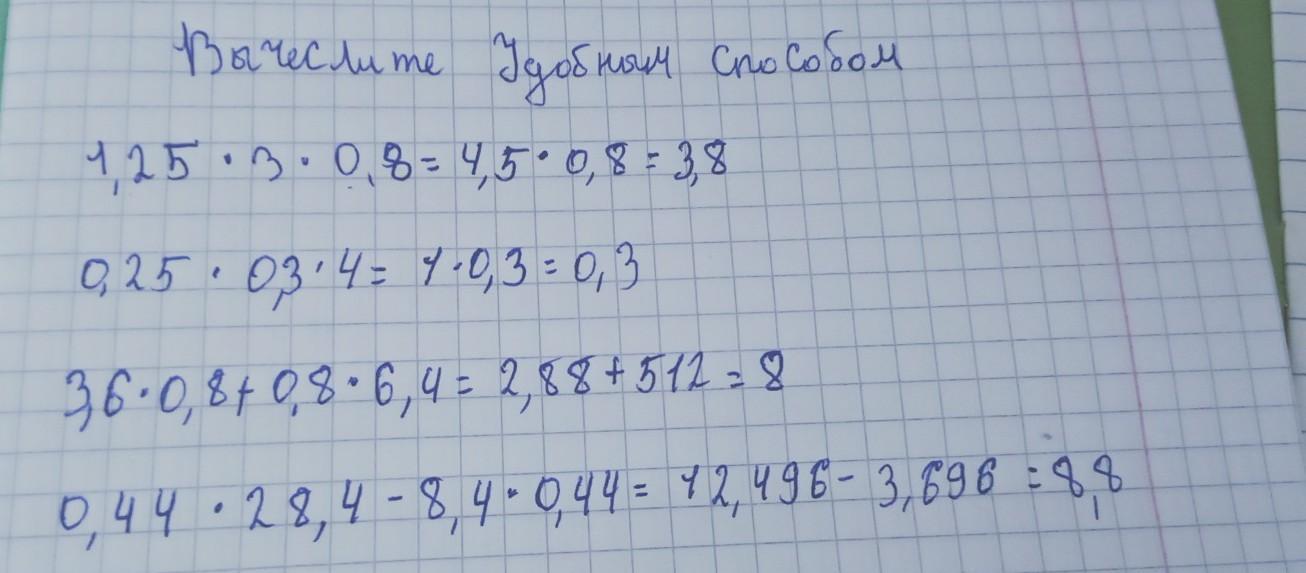 Вычеслите Удобным способом
1,25 · 3 · 0,8 = 4,5 · 0,8 = 3,8
0,25 · 0,3 · 4 = 1 · 0,3 = 0,3
3,6 · 0,8 + 0,8 · 6,4 = 2,88 + 512 = 8
0,44 · 28,4 - 8,4 · 0,44 = 12,496 - 3,696 = 8,8